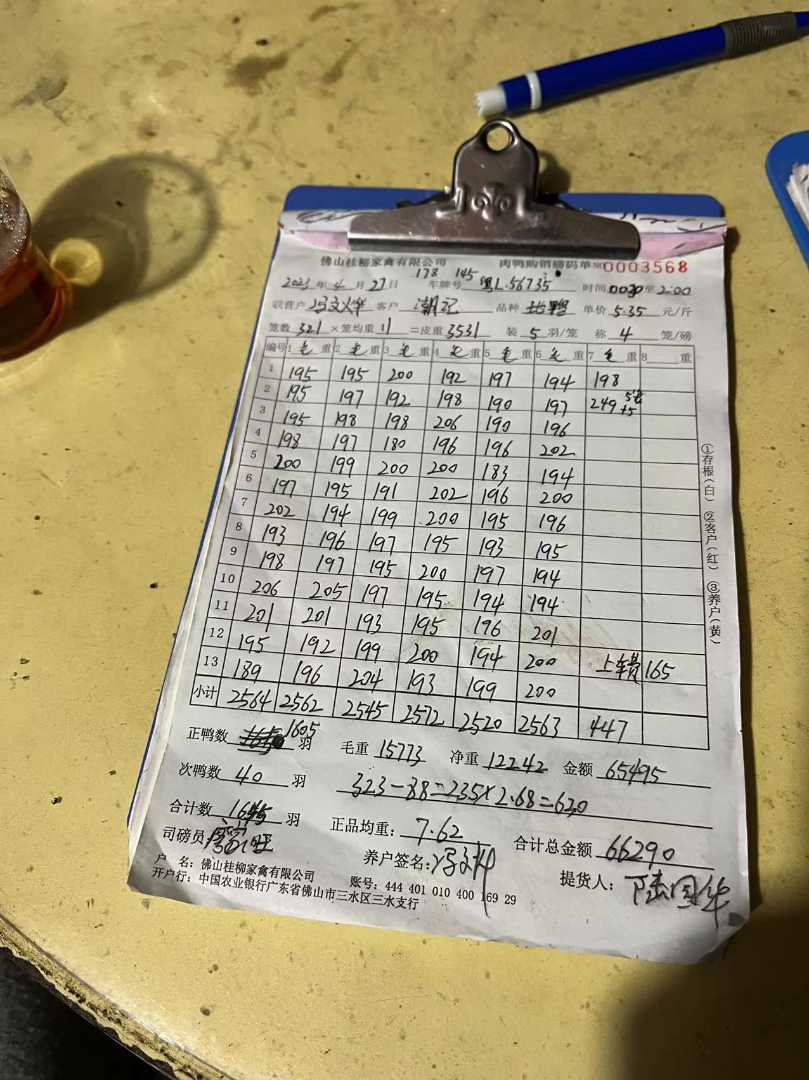 佛山桂柳家禽有限公司 肉鸭购销磅码单 №0003568
178 145
2023年4月27日 车牌号 粤L.56735 时间0030至2:00
收普户 冯文火华 客户 潮记 品种 单价5.35元/斤
笼数321×笼均重11=皮重3531 装5羽/笼 称4笼/磅
编号 1毛重 2毛重 3毛重 4毛重 5毛重 6毛重 7毛重 8重
1 195 195 200 192 197 194 198
2 195 197 192 198 190 197 249 5笔 +5
3 195 198 198 206 190 196
4 198 197 180 196 196 202
5 200 199 200 200 183 194
6 197 195 191 202 196 200
7 202 194 199 200 195 196
8 193 196 197 195 193 195
9 198 197 195 200 197 194
10 206 205 197 195 194 194
11 201 201 193 195 196 201
12 195 192 199 200 194 200 上车费165
13 189 196 204 193 199 200
小计 2564 2562 2545 2572 2520 2563 447
①存根(白) ②客户(红) ③养户(黄)
正鸭数 1605羽 毛重15773 净重12242 金额65495
次鸭数40羽 323-88=235×2.68=630
合计数1645羽 正品均重:7.62 合计总金额66290
司磅员: 养户签名: 提货人:陆国华
户 名:佛山桂柳家禽有限公司 账号:444 401 010 400 169 29
开户行:中国农业银行广东省佛山市三水区三水支行